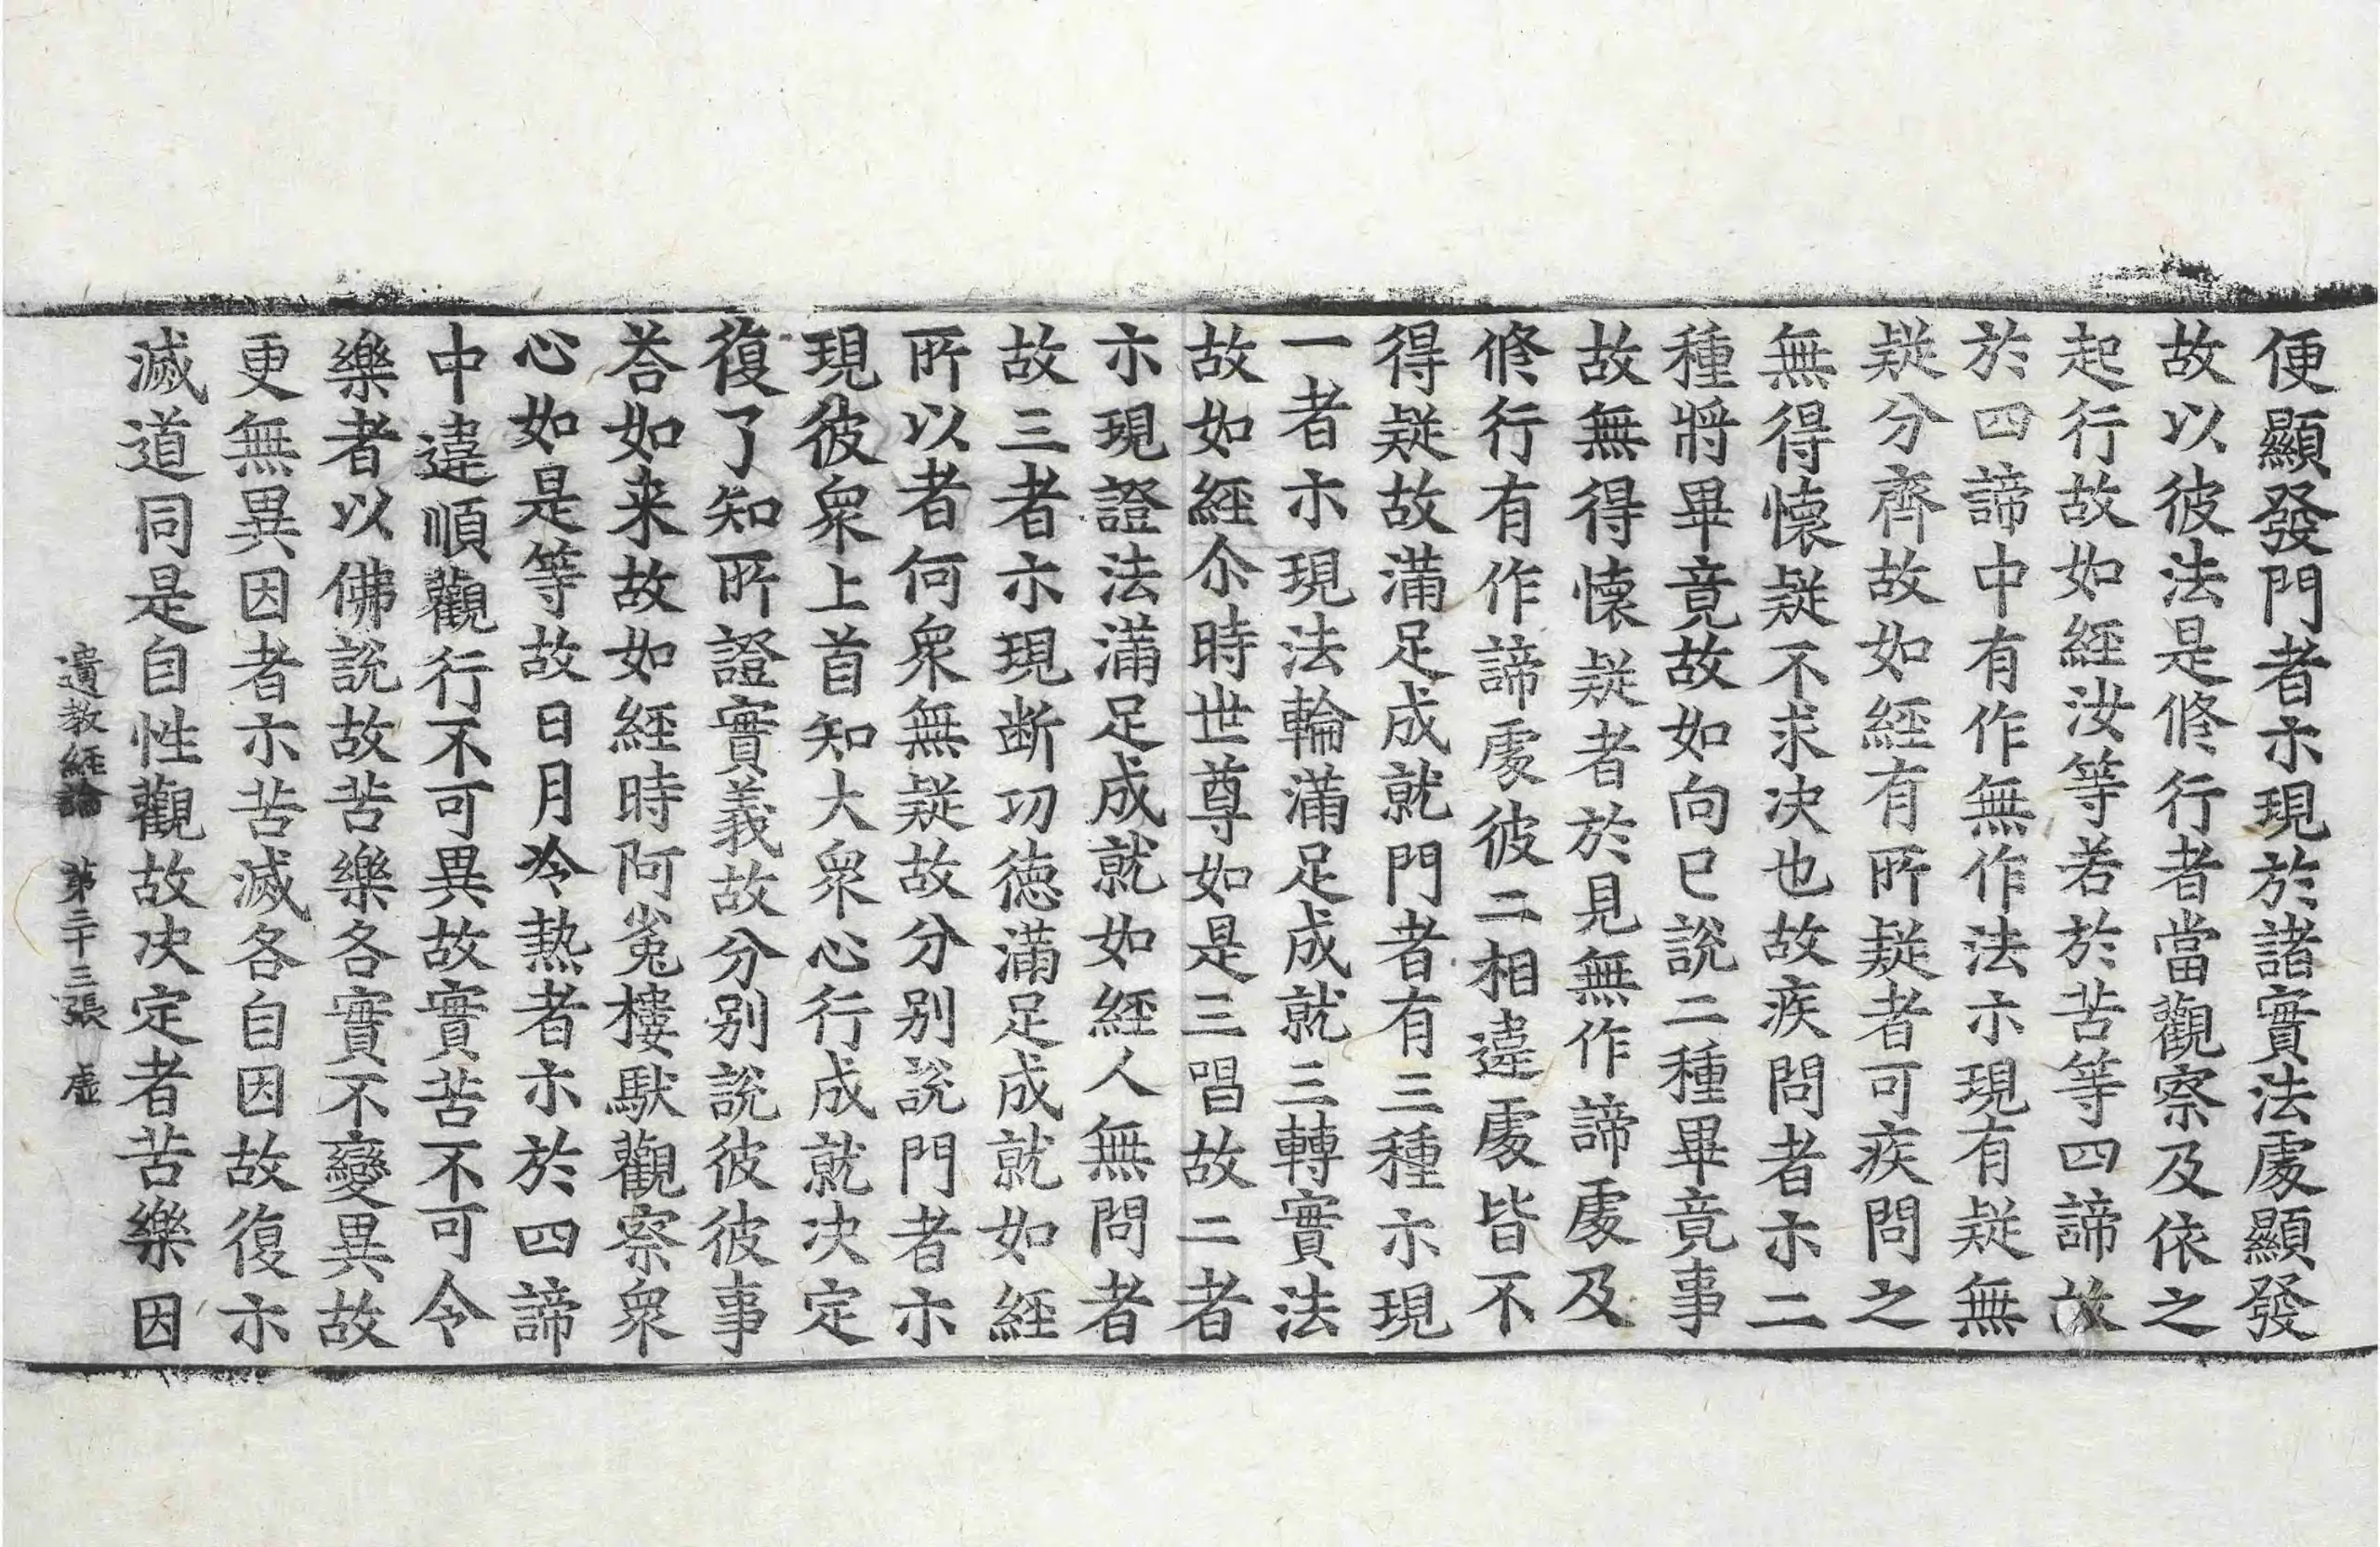 便顯發門者示現於諸實法處顯發
故以彼法是修行者當觀察及依之
起行故如經汝等若於苦等四諦故
於四諦中有作無作法示現有疑無
疑分齊故如經有所疑者可疾問之
無得懷疑不求決也故疾問者示二
種將畢竟故如向已說二種畢竟事
故無得懷疑者於見無作諦處及
修行有作諦處彼二相違處皆不
得疑故滿足成就門者有三種示現
一者示現法輪滿足成就三轉實法
故如經尒時世尊如是三唱故二者
示現證法滿足成就如經人無問者
故三者示現断功德滿足成就如經
所以者何衆無疑故分別說門者示
現彼衆上首知大衆心行成就決定
復了知所證實義故分別說彼彼事
荅如来故如經時阿㝹樓馱觀察衆
心如是等故日月冷熱者示於四諦
中違順觀行不可異故實苦不可令
樂者以佛說故苦樂各實不變異故
更無異因者示苦滅各自因故復示
滅道同是自性觀故決定者苦樂因
遺教經論 第二十三張 虛